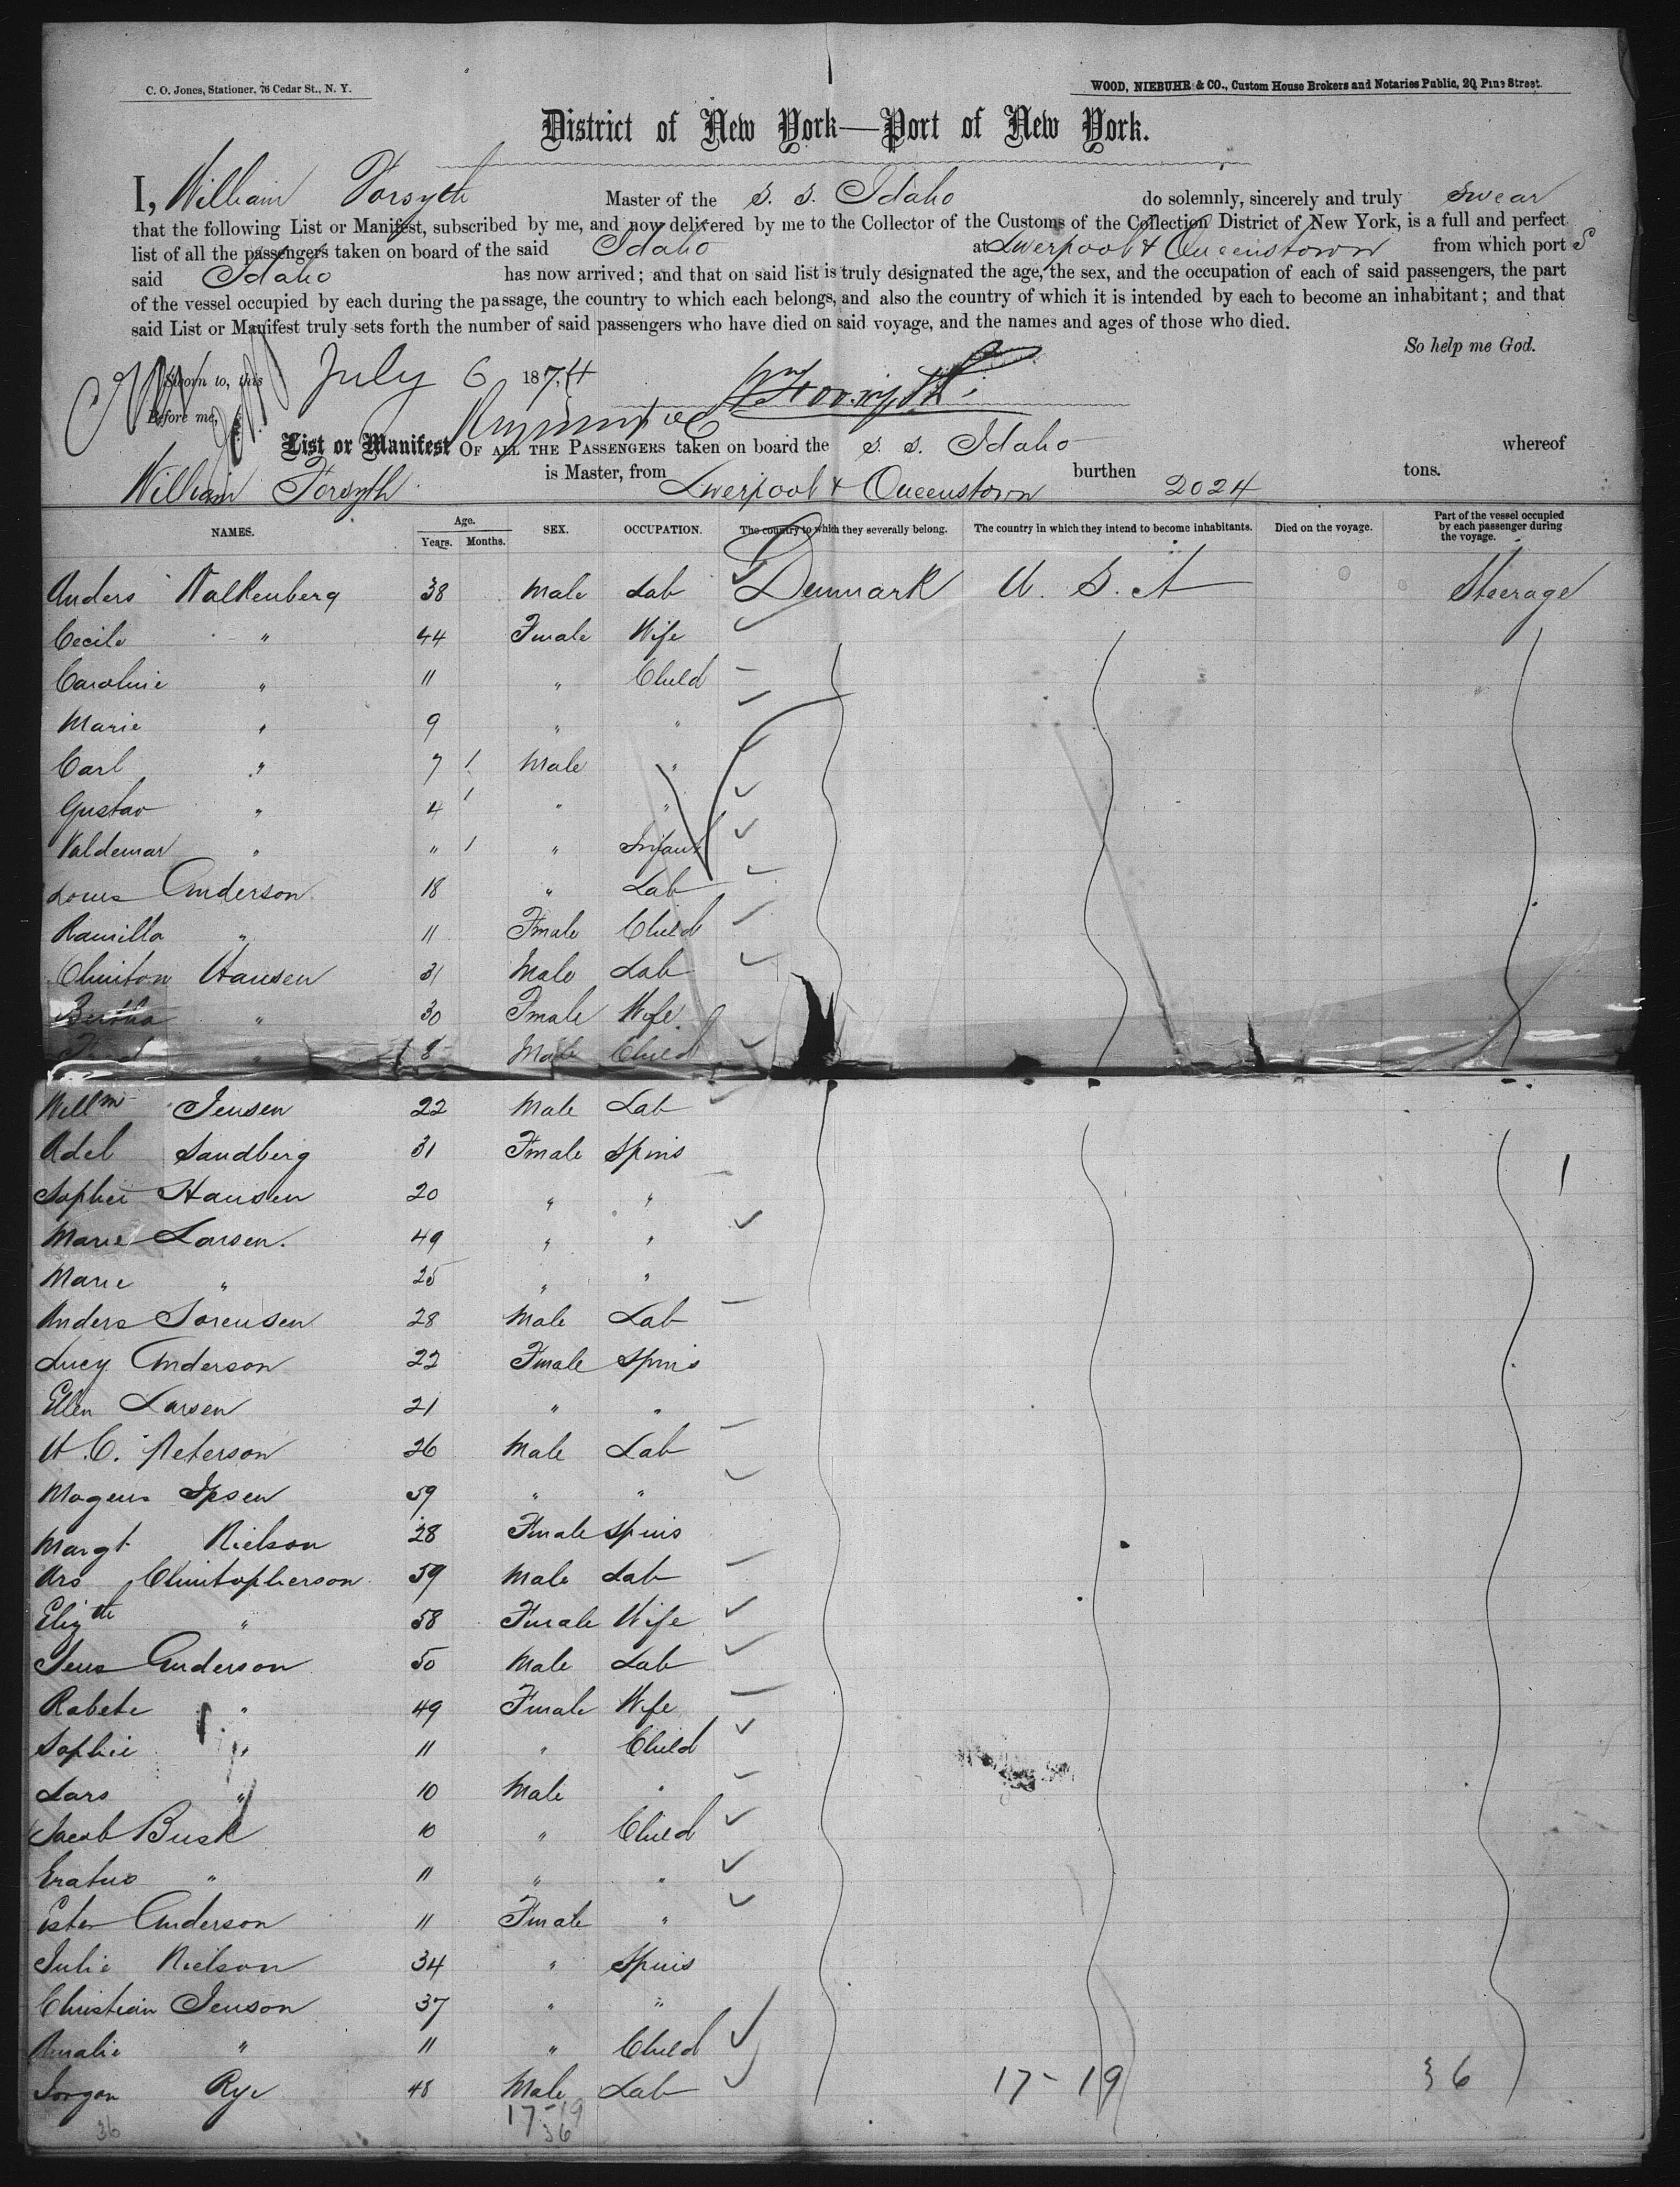 C. O. Jones, Stationer, 76 Cedar St., N. Y.
WOOD, NIEBUHR & CO., Custom House Brokers and Notaries Public, 20 Pine Street.
District of New York—Port of New York.
I, William Forsyth Master of the S. S. Idaho do solemnly, sincerely and truly swear
that the following List or Manifest, subscribed by me, and now delivered by me to the Collector of the Customs of the Collection District of New York, is a full and perfect
list of all the passengers taken on board of the said Idaho at Liverpool & Queenstown from which port S
said Idaho has now arrived; and that on said list is truly designated the age, the sex, and the occupation of each of said passengers, the part
of the vessel occupied by each during the passage, the country to which each belongs, and also the country of which it is intended by each to become an inhabitant; and that
said List or Manifest truly sets forth the number of said passengers who have died on said voyage, and the names and ages of those who died.
So help me God.
Sworn to, this July 6 1874 Wm Forsyth
Before me,
List or Manifest OF ALL THE PASSENGERS taken on board the S. S. Idaho whereof
William Forsyth is Master, from Liverpool & Queenstown burthen 2024 tons.
NAMES. Age. Years. Months. SEX. OCCUPATION. The country to which they severally belong. The country in which they intend to become inhabitants. Died on the voyage. Part of the vessel occupied by each passenger during the voyage.
Anders Valkenberg 38 Male Lab Denmark U. S. A Steerage
Cecile " 44 Fmale Wife
Caroline " 11 " Child
Marie " 9 " "
Carl " 7 Male "
Gustav " 4 " "
Valdemar " " 1 " Infant
Louis Anderson 18 " Lab
Ramilla " 11 Fmale Child
Christon Hansen 31 Male Lab
Bertha " 30 Fmale Wife
" 8 Male Child
Willm Jensen 22 Male Lab
Adel Sandberg 31 Fmale Spins
Sophie Hansen 20 " "
Marie Larsen. 49 " "
Marie " 25 " "
Anders Sorensen 28 Male Lab
Lucy Anderson 22 Fmale Spins
Ellen Larsen 21 " "
H. C. Peterson 26 Male Lab
Mogens Ipsen 59 " "
Margt Nielson 28 Fmale Spins
Ars Christopherson 59 Male Lab
Elizth " 58 Fmale Wife
Jens Anderson 50 Male Lab
Rabete " 49 Fmale Wife
Sophie " 11 " Child
Lars " 10 Male "
Jacob Busk 10 " Child
" 11 " "
Ester Anderson 11 Fmale "
Julie Nielson 34 " Spins
Christian Jenson 37 " "
Amalie " 11 " Child
Jorgen Rye 48 Male Lab 17-19 36
17-19
36 36